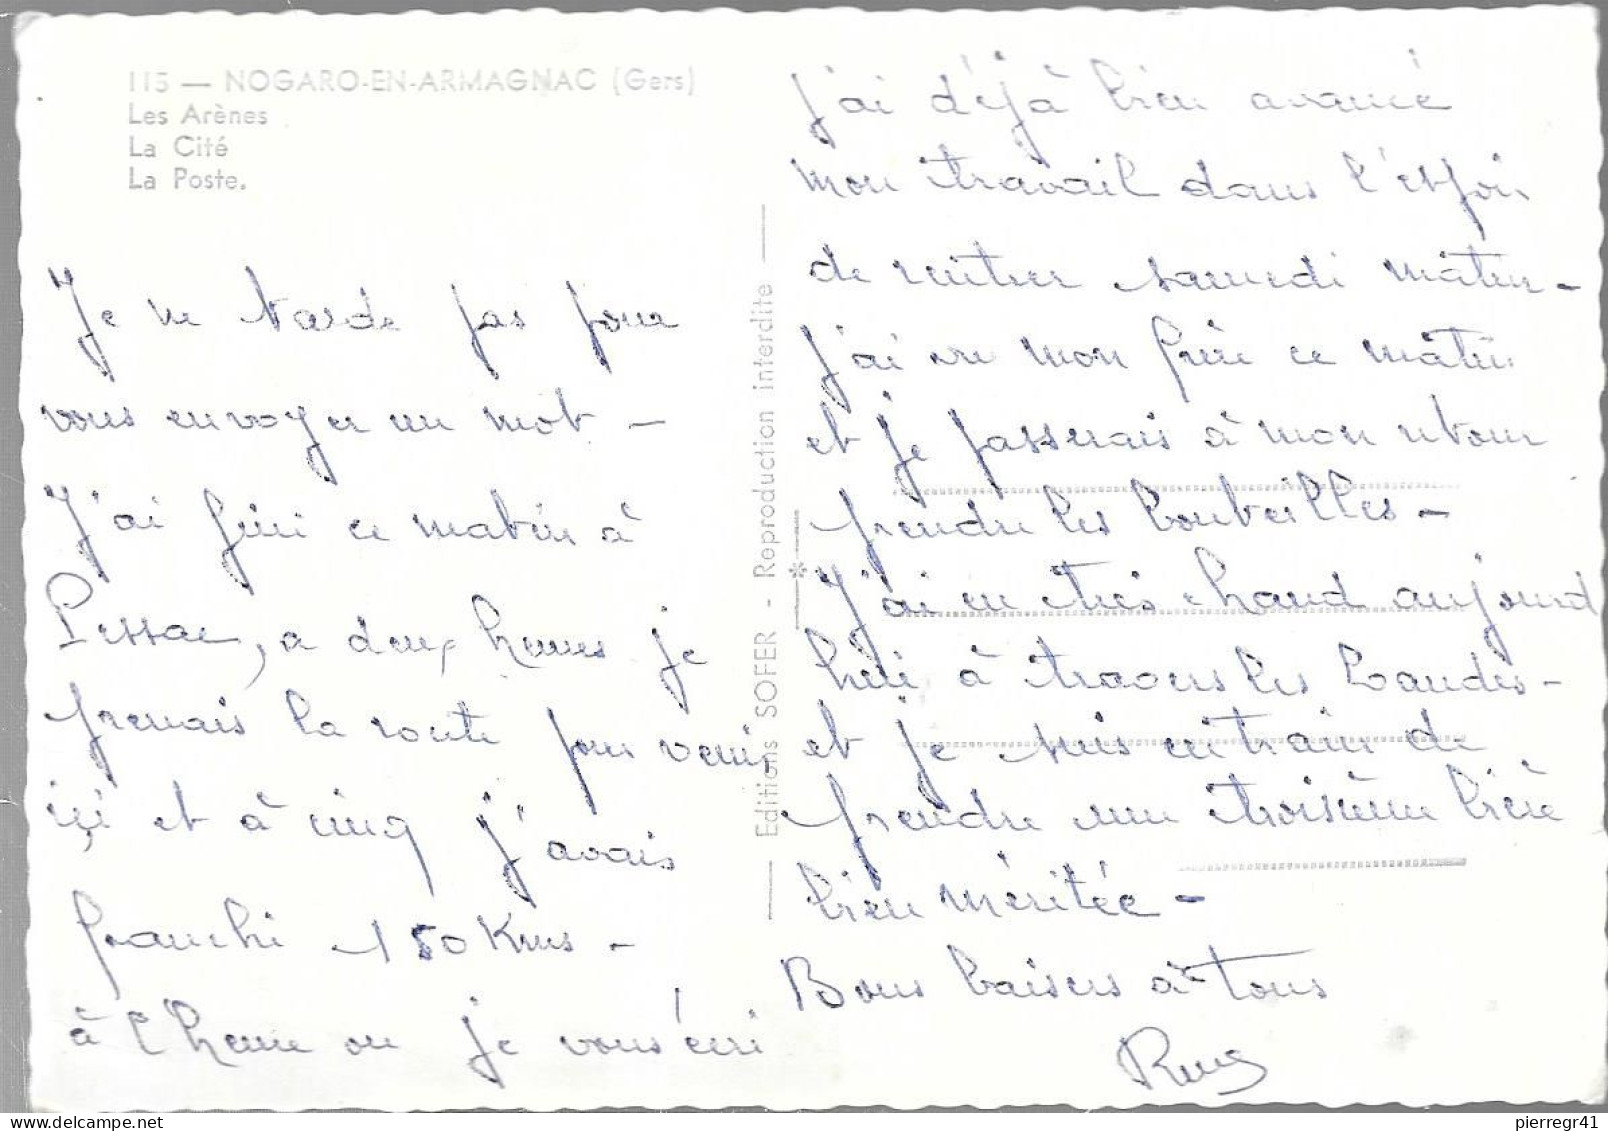 115 — NOGARO-EN-ARMAGNAC (Gers)
Les Arènes
La Cité
La Poste.
Je ne tarde pas pour
vous envoyer un mot —
J'ai fini ce matin à
Pessac, a deux heures je
prenais la route pour venir
içi et à cinq j'avais
franchi 150 Kms —
à l'heure ou je vous écri
Editions SOFER - Reproduction interdite
J'ai déjà bien avancé
mon travail dans l'espoir
de rentrer samedi matin —
J'ai vu mon frère ce matin
et je passerais à mon retour
prendre les bouteilles —
J'ai eu très chaud aujourd
hui à travers les Landes —
et je suis en train de
prendre une troisième bière
bien méritée —
Bons baisers à tous
pierregr41